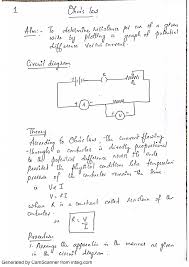 1 Ohm's law
Aim:- To determine resistance per cm of a given
wire by plotting a graph of potential
difference versus current.
Circuit diagram
A
V
Theory
According to Ohm's law, the current flowing
through a conductor is directly proportional
to the potential difference across its ends
provided the physical conditions like temperature
pressure of the conductor remains the same
V ∝ I
V = RI
where R is a constant called resistance of the
conductor
R = V/I
Procedure:
Arrange the apparatus in the manner as given
in the circuit diagram.
Generated by CamScanner from intsig.com